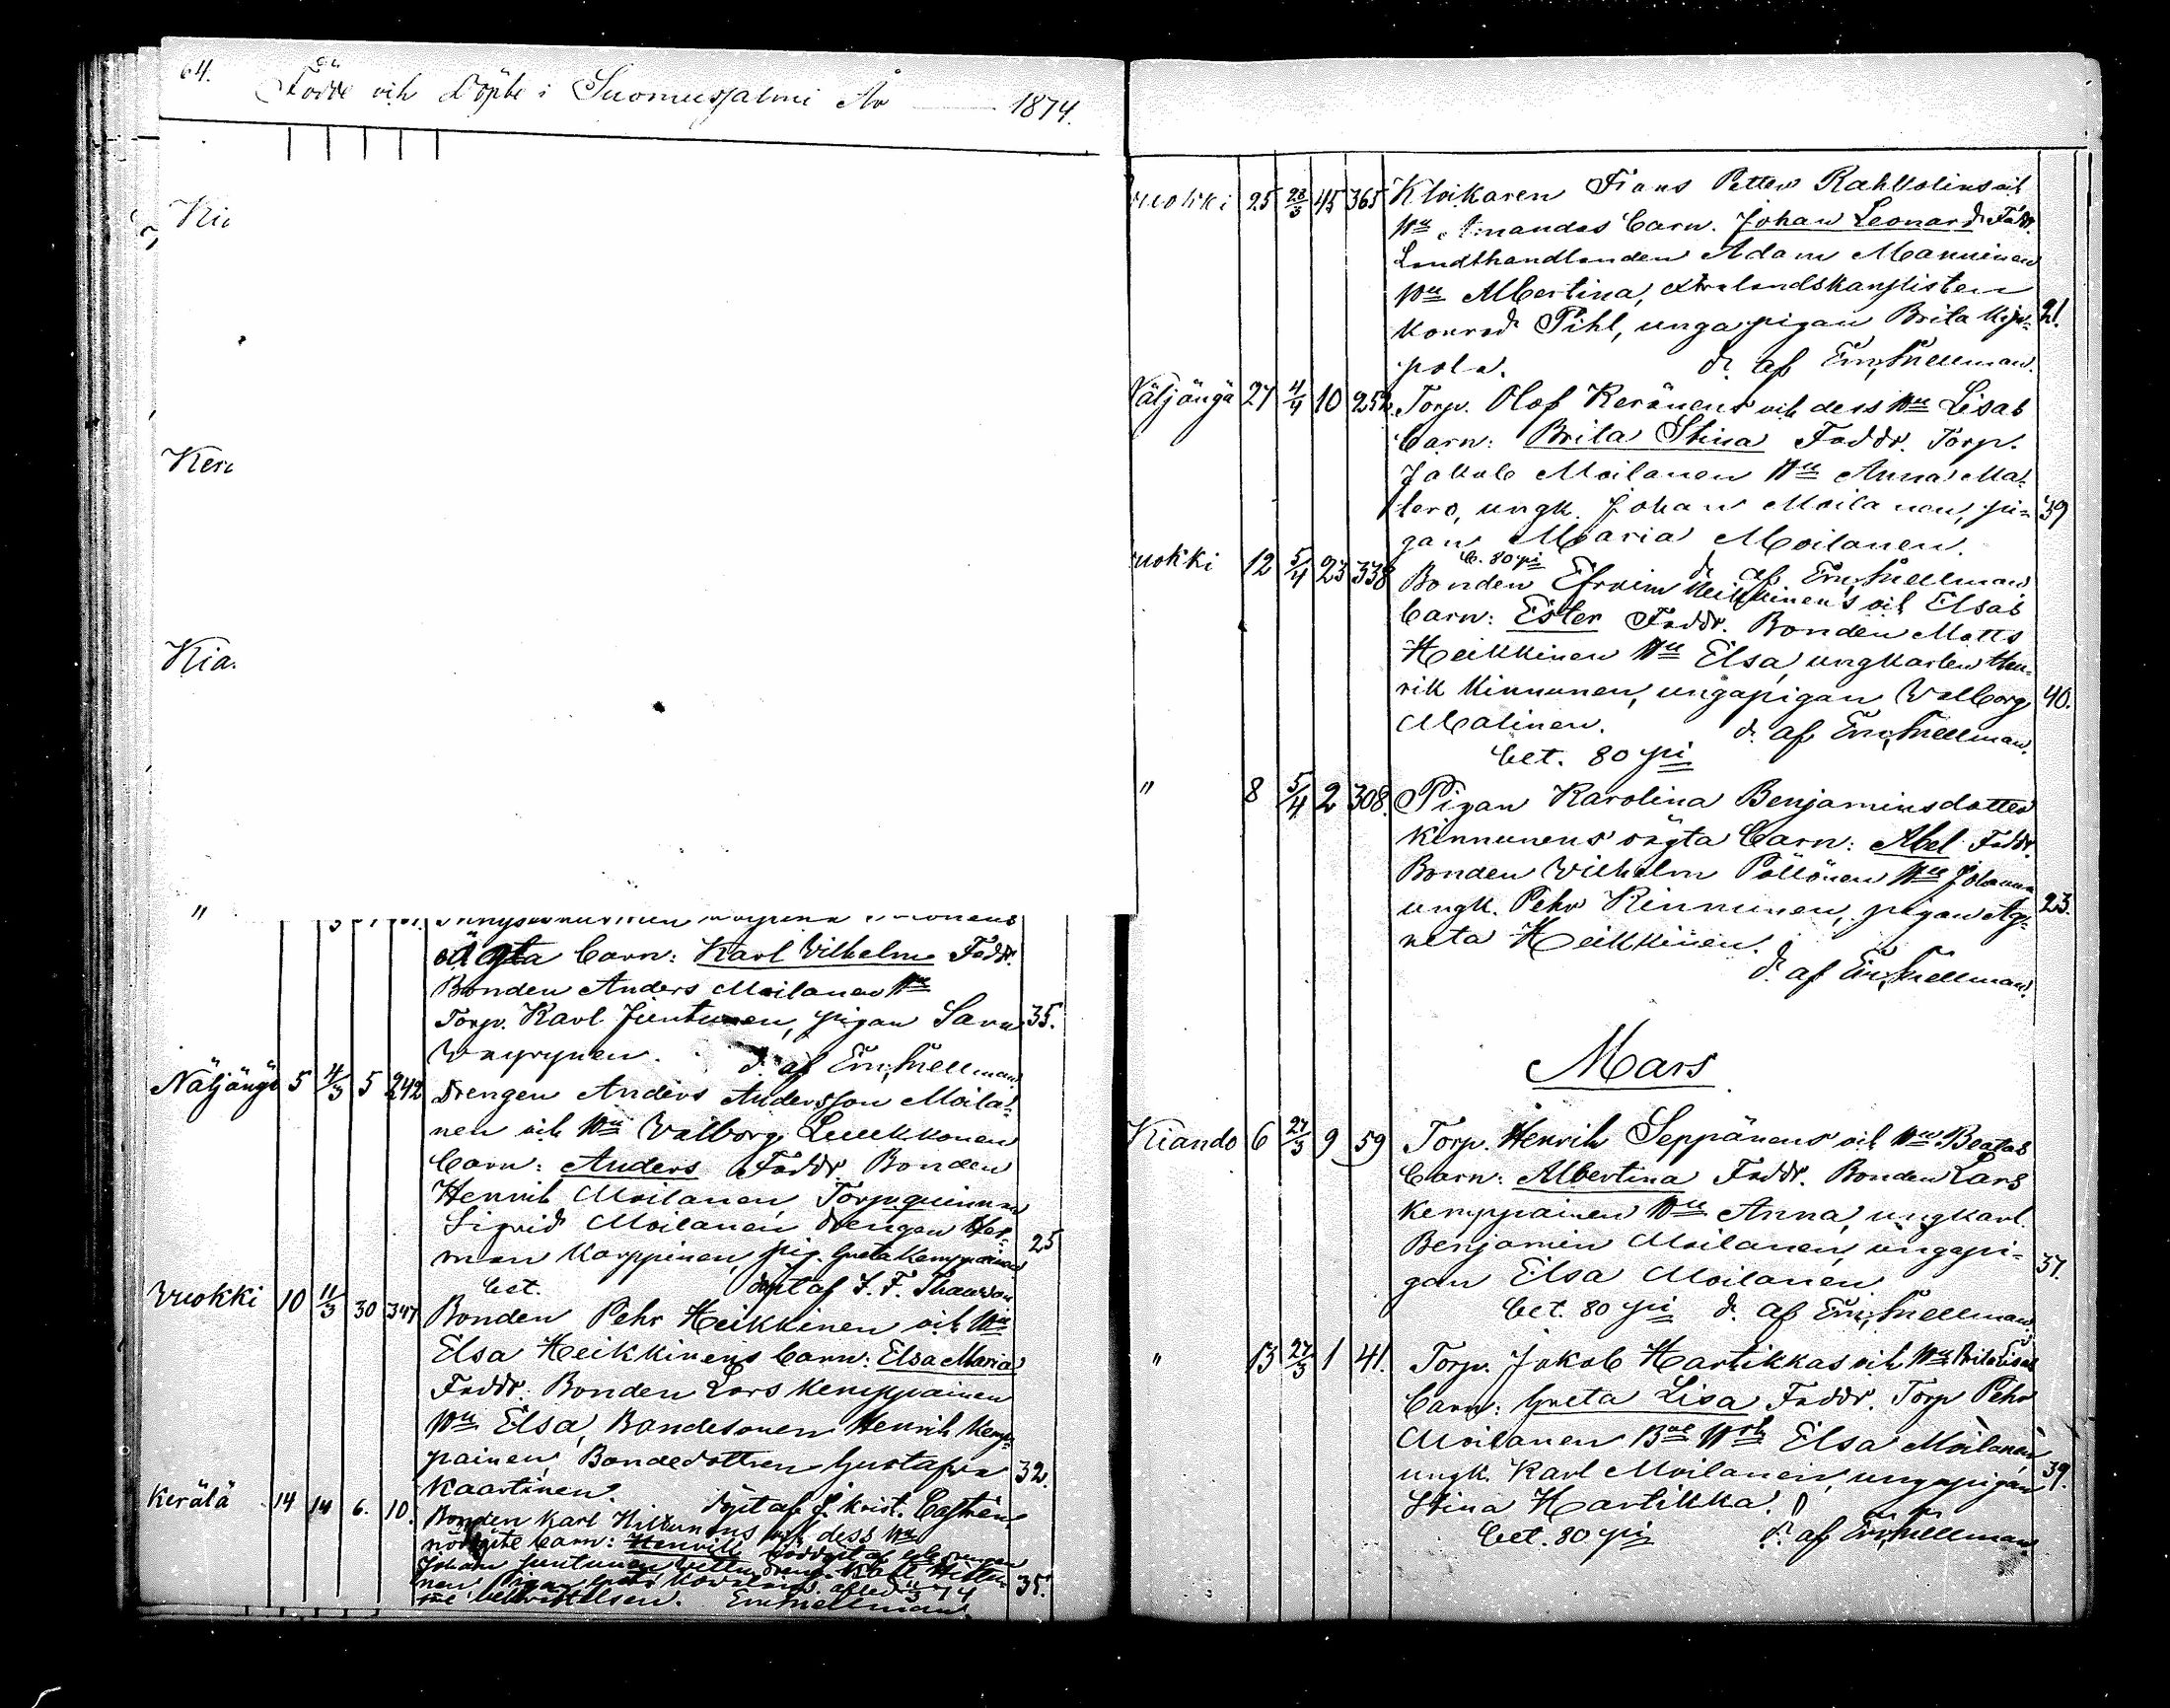 64.
Födde och Döpte i Suomussalmi År 1874.
Kia
Kerä
Kia.
"
oägta barn: Karl Vilhelm Fadd.
Bonden Anders Moilanen Hu
Torp. Karl Juntunen, pigan Sara 35.
Wäyrynen. d. af Em. Snellman
Näljängä 5 4/3 5 242 Drengen Anders Andersson Moila-
nen och Hu Valborg Luukkonen
barn: Anders Faddr. Bonden
Henrik Moilanen, Torpqvinnan
Sigrid Moilanen, drengen Her-
man Karppinen, pig. Greta Kemppainen 25
bet. döpt af J. F. Thauvon
Vuokki 10 11/3 30 347 Bonden Pehr Heikkinen och Hu
Elsa Heikkinens barn: Elsa Maria
Faddr. Bonden Lars Kemppainen
Hu Elsa, Bondesonen Henrik Kemp-
painen, Bondedottren Gustafva 32.
Kaartinen. Döpt af J. Krist. Castrén
Kerälä 14 14 6. 10. Bonden Karl Hiltunens och dess Hu
nödöpte barn: Henrik
Johan Juntunen Hiltu-
nen, Pigan 35.
Em. Snellman.
Vuokki 25 28/3 45 365 Klockaren Frans Petter Rahkolins och
Hu Amandas barn. Johan Leonard Faddr.
Landthandlanden Adam Manninen
Hu Albertina, extralandskanslisten
Konrad Pihl, unga pigan Brita Kip- 21.
pola. d. af Em. Snellman.
Näljängä 27 4/4 10 252. Torp. Olof Keränens och dess Hu Lisas
barn: Brita Stina Faddr. Torp.
Jakob Moilanen Hu Anna Ma-
tero, ungk. Johan Moilanen, pi- 39
gan Maria Moilanen.
b. 80 pi d. af Em. Snellman
Vuokki 12 5/4 23 338 Bonden Efraim Heikkinen's och Elsas
barn: Ester Faddr. Bonden Matts
Heikkinen Hu Elsa, ungkarlen Hen-
rik Kinnunen, ungapigan Valborg 40.
Malinen. d. af Em. Snellman.
bet. 80 pi
" 8 5/4 2 308. Pigan Karolina Benjaminsdotter
Kinnunens oägta barn: Abel Faddr.
Bonden Vilhelm Pöllönen Hu Johanna
ungk. Pehr Kinnunen, pigan Ag- 23.
neta Heikkinen.
d. af Em. Snellman.
Mars
Kiando 6 27/3 9 59 Torp. Henrik Seppänens och Hu Beatas
barn: Albertina Faddr. Bonden Lars
Kemppainen Hu Anna, ungkarl.
Benjamin Moilanen, ungapi-
gan Elsa Moilanen 37.
bet. 80 pi d. af Em. Snellman
" 13 27/3 1 41. Torp. Jakob Hartikkas och Hu Brita Lisas
barn: Greta Lisa Faddr. Torp Pehr
Moilanen Elsa Moilanen
ungk. Karl Moilanen, ungapigan 39.
Stina Hartikka.
bet. 80 pi d. af Em. Snellman.